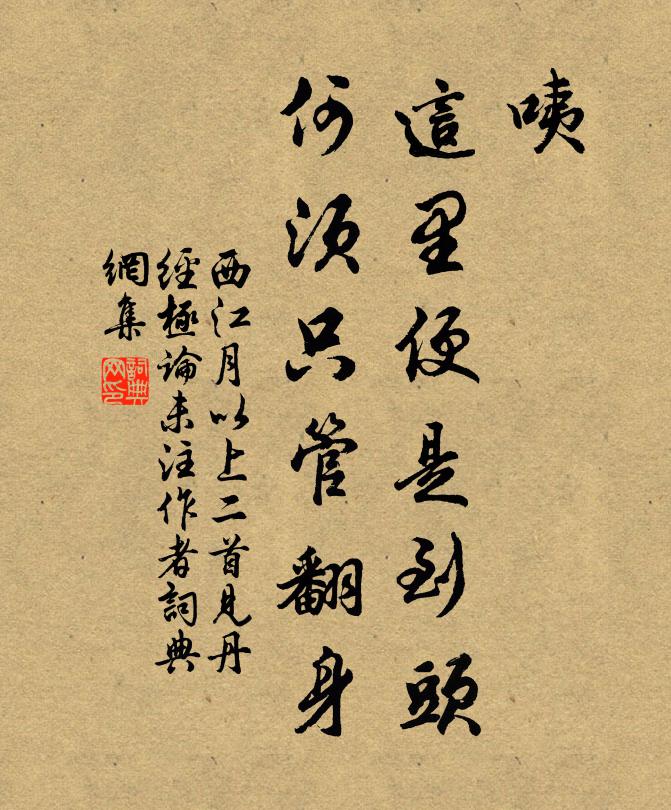 咦
這里便是到頭
何須只管翻身
西江月以上二首見丹
經極論未注作者詞典
網集
詞典網印